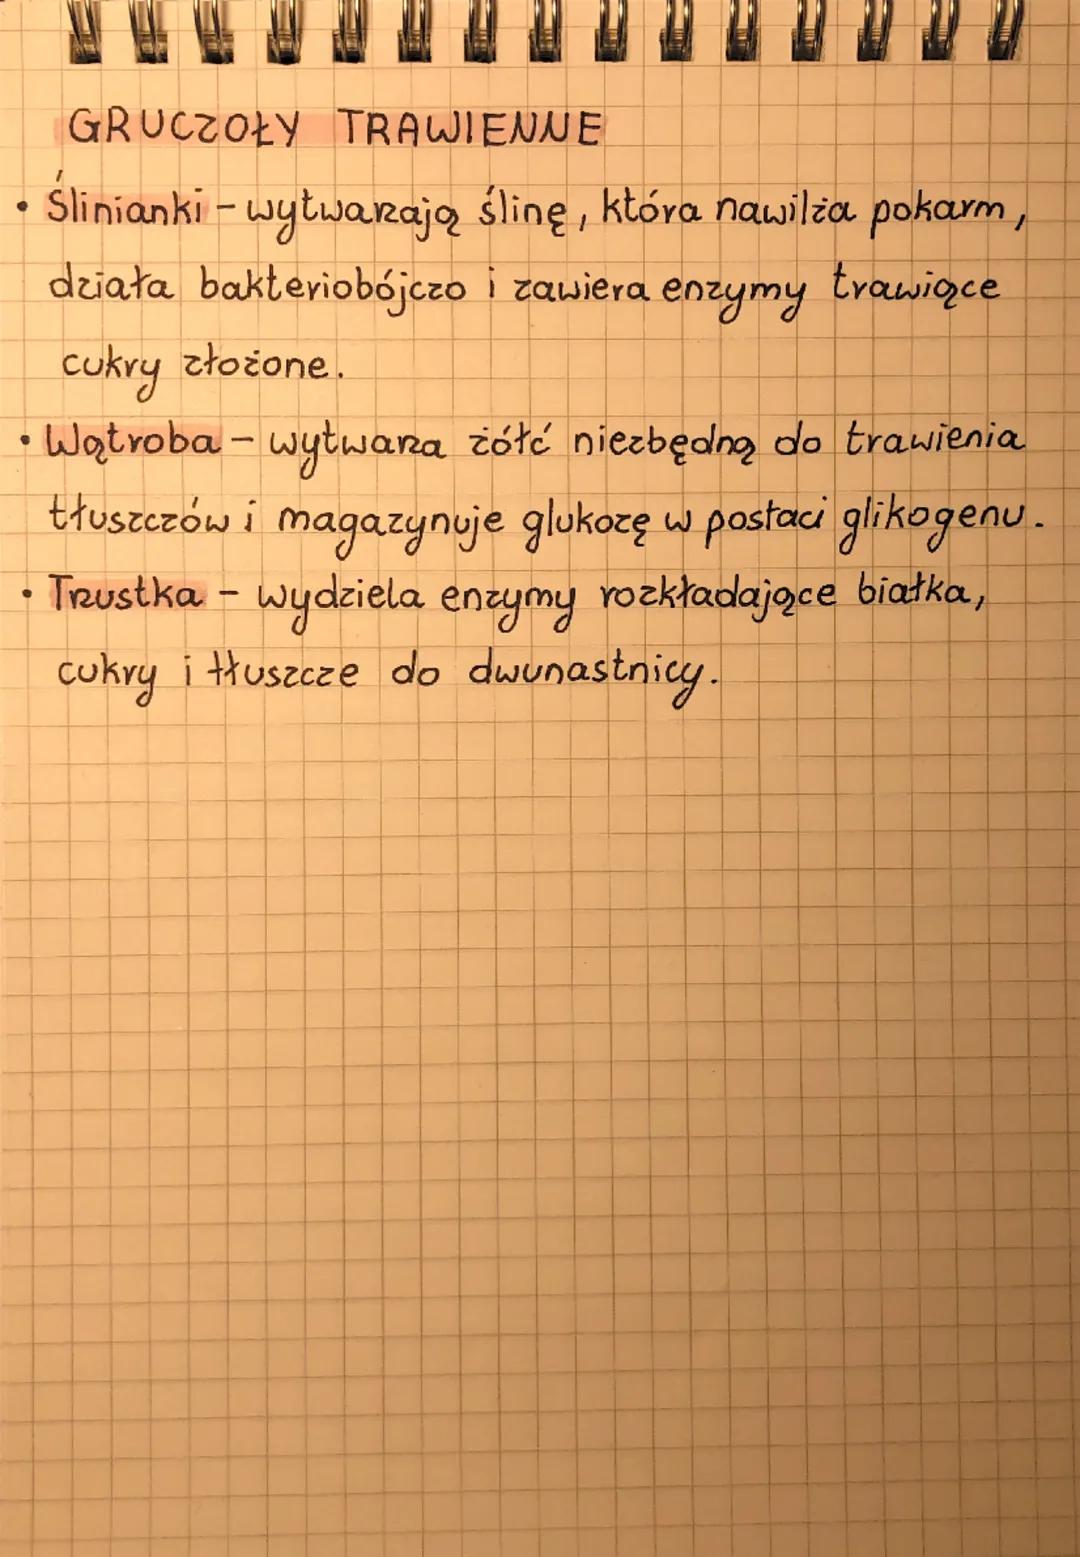 GRUCZOŁY TRAWIENNE
• Ślinianki - wytwarzają ślinę, która nawilża pokarm,
działa bakteriobójczo i zawiera enzymy trawiące
cukry złożone.
• Wątroba - wytwarza żółć niezbędną do trawienia
tłuszczów i magazynuje glukozę w postaci glikogenu.
• Trzustka - wydziela enzymy rozkładające białka,
cukry i tłuszcze do dwunastnicy.